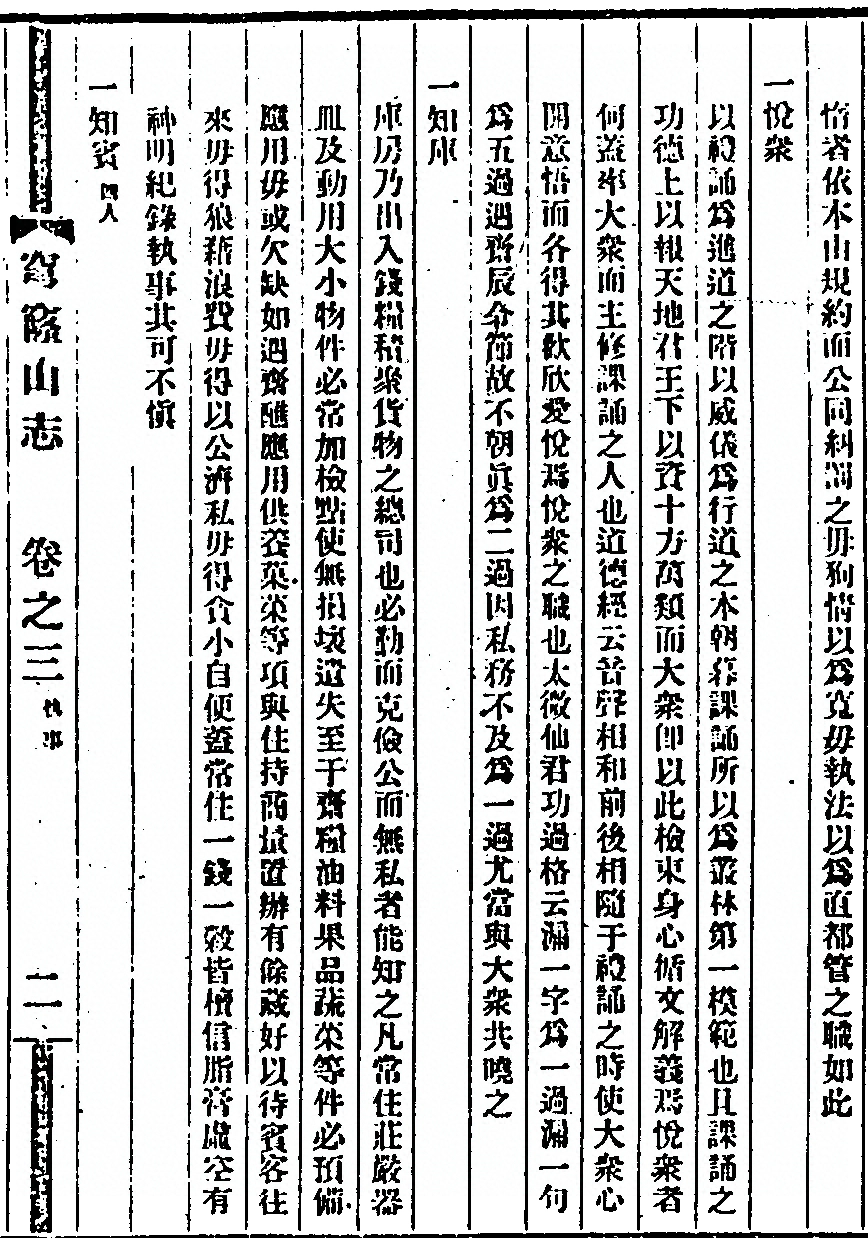 惰者依本山規約而公同糾罰之毋狥情以爲寬毋執法以爲直都管之職如此
一悅衆
以禮誦爲進道之階以威儀爲行道之本朝暮課誦所以爲叢林第一模範也且課誦之
功德上以報天地君王下以資十方萬類而大衆卽以此檢束身心循文解義焉悅衆者
何蓋率大衆而主修課誦之人也道德經云音聲相和前後相隨于禮誦之時使大衆心
開意悟而各得其歡欣愛悅焉悅衆之職也太微仙君功過格云漏一字爲一過漏一句
爲五過遇齋辰令節故不朝眞爲二過因私務不及爲一過尤當與大衆共曉之
一知庫
庫房乃出入錢糧積聚貨物之總司也必勤而克儉公而無私者能知之凡常住莊嚴器
皿及動用大小物件必常加檢點使無損壞遺失至于齋糧油料果品蔬菜等件必預備
應用毋或欠缺如遇齋醮應用供養菓菜等項與住持商量置辦有餘藏好以待賓客往
來毋得狼藉浪費毋得以公濟私毋得貪小自便蓋常住一錢一穀皆檀信脂膏虛空有
神明紀錄執事其可不愼
一知賓 四人
穹窿山志 卷之三 執事 二